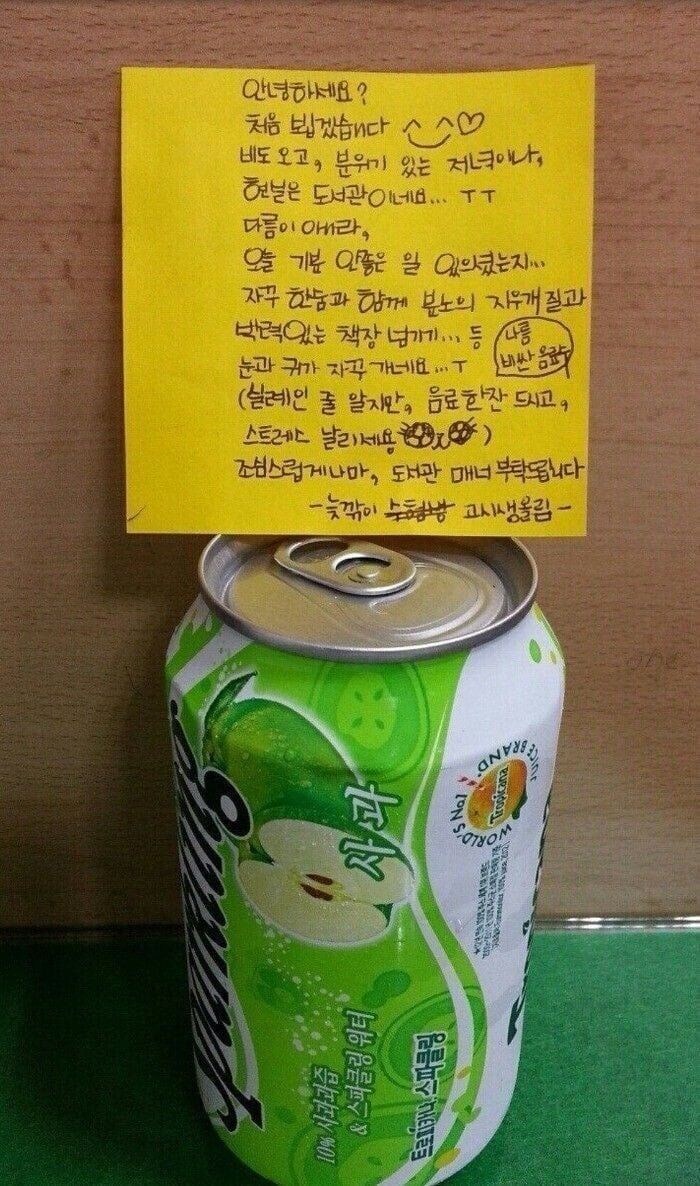 안녕하세요?
처음 뵙겠습니다 ^‿^♡
비도 오고, 분위기 있는 저녁이나,
현실은 도서관이네요... ㅜㅜ
다름이 아니라,
오늘 기분 안좋은 일 있으셨는지...
자꾸 한숨과 함께 분노의 지우개질과
박력있는 책장 넘기기... 등
나름
비싼 음료
눈과 귀가 자꾸 가네요...ㅜ
(실례인 줄 알지만, 음료한잔 드시고,
스트레스 날리세요)
조심스럽게나마, 도서관 매너 부탁드립니다
-늦깎이 수험생 고시생올림-
Sparkling
사과
WORLD'S No.1 JUICE BRAND.
Tropicana
10% 사과과즙
& 스파클링 워터
트로피카나 스파클링